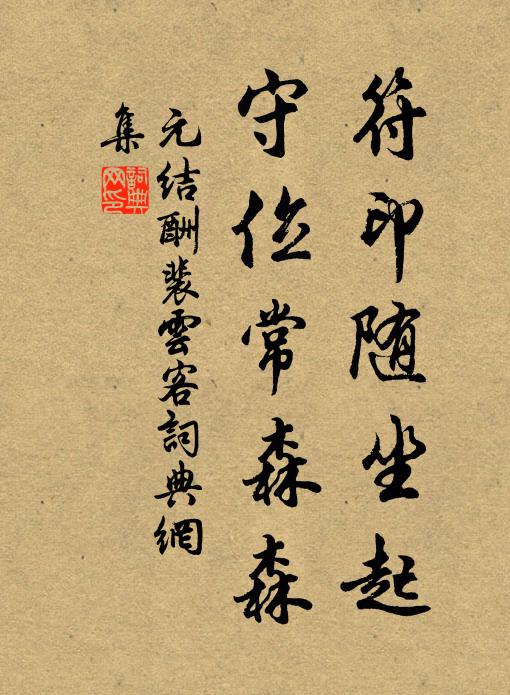 符印随坐起
守位常森森
元结酬裴雲客詞典網
集
詞典
网印